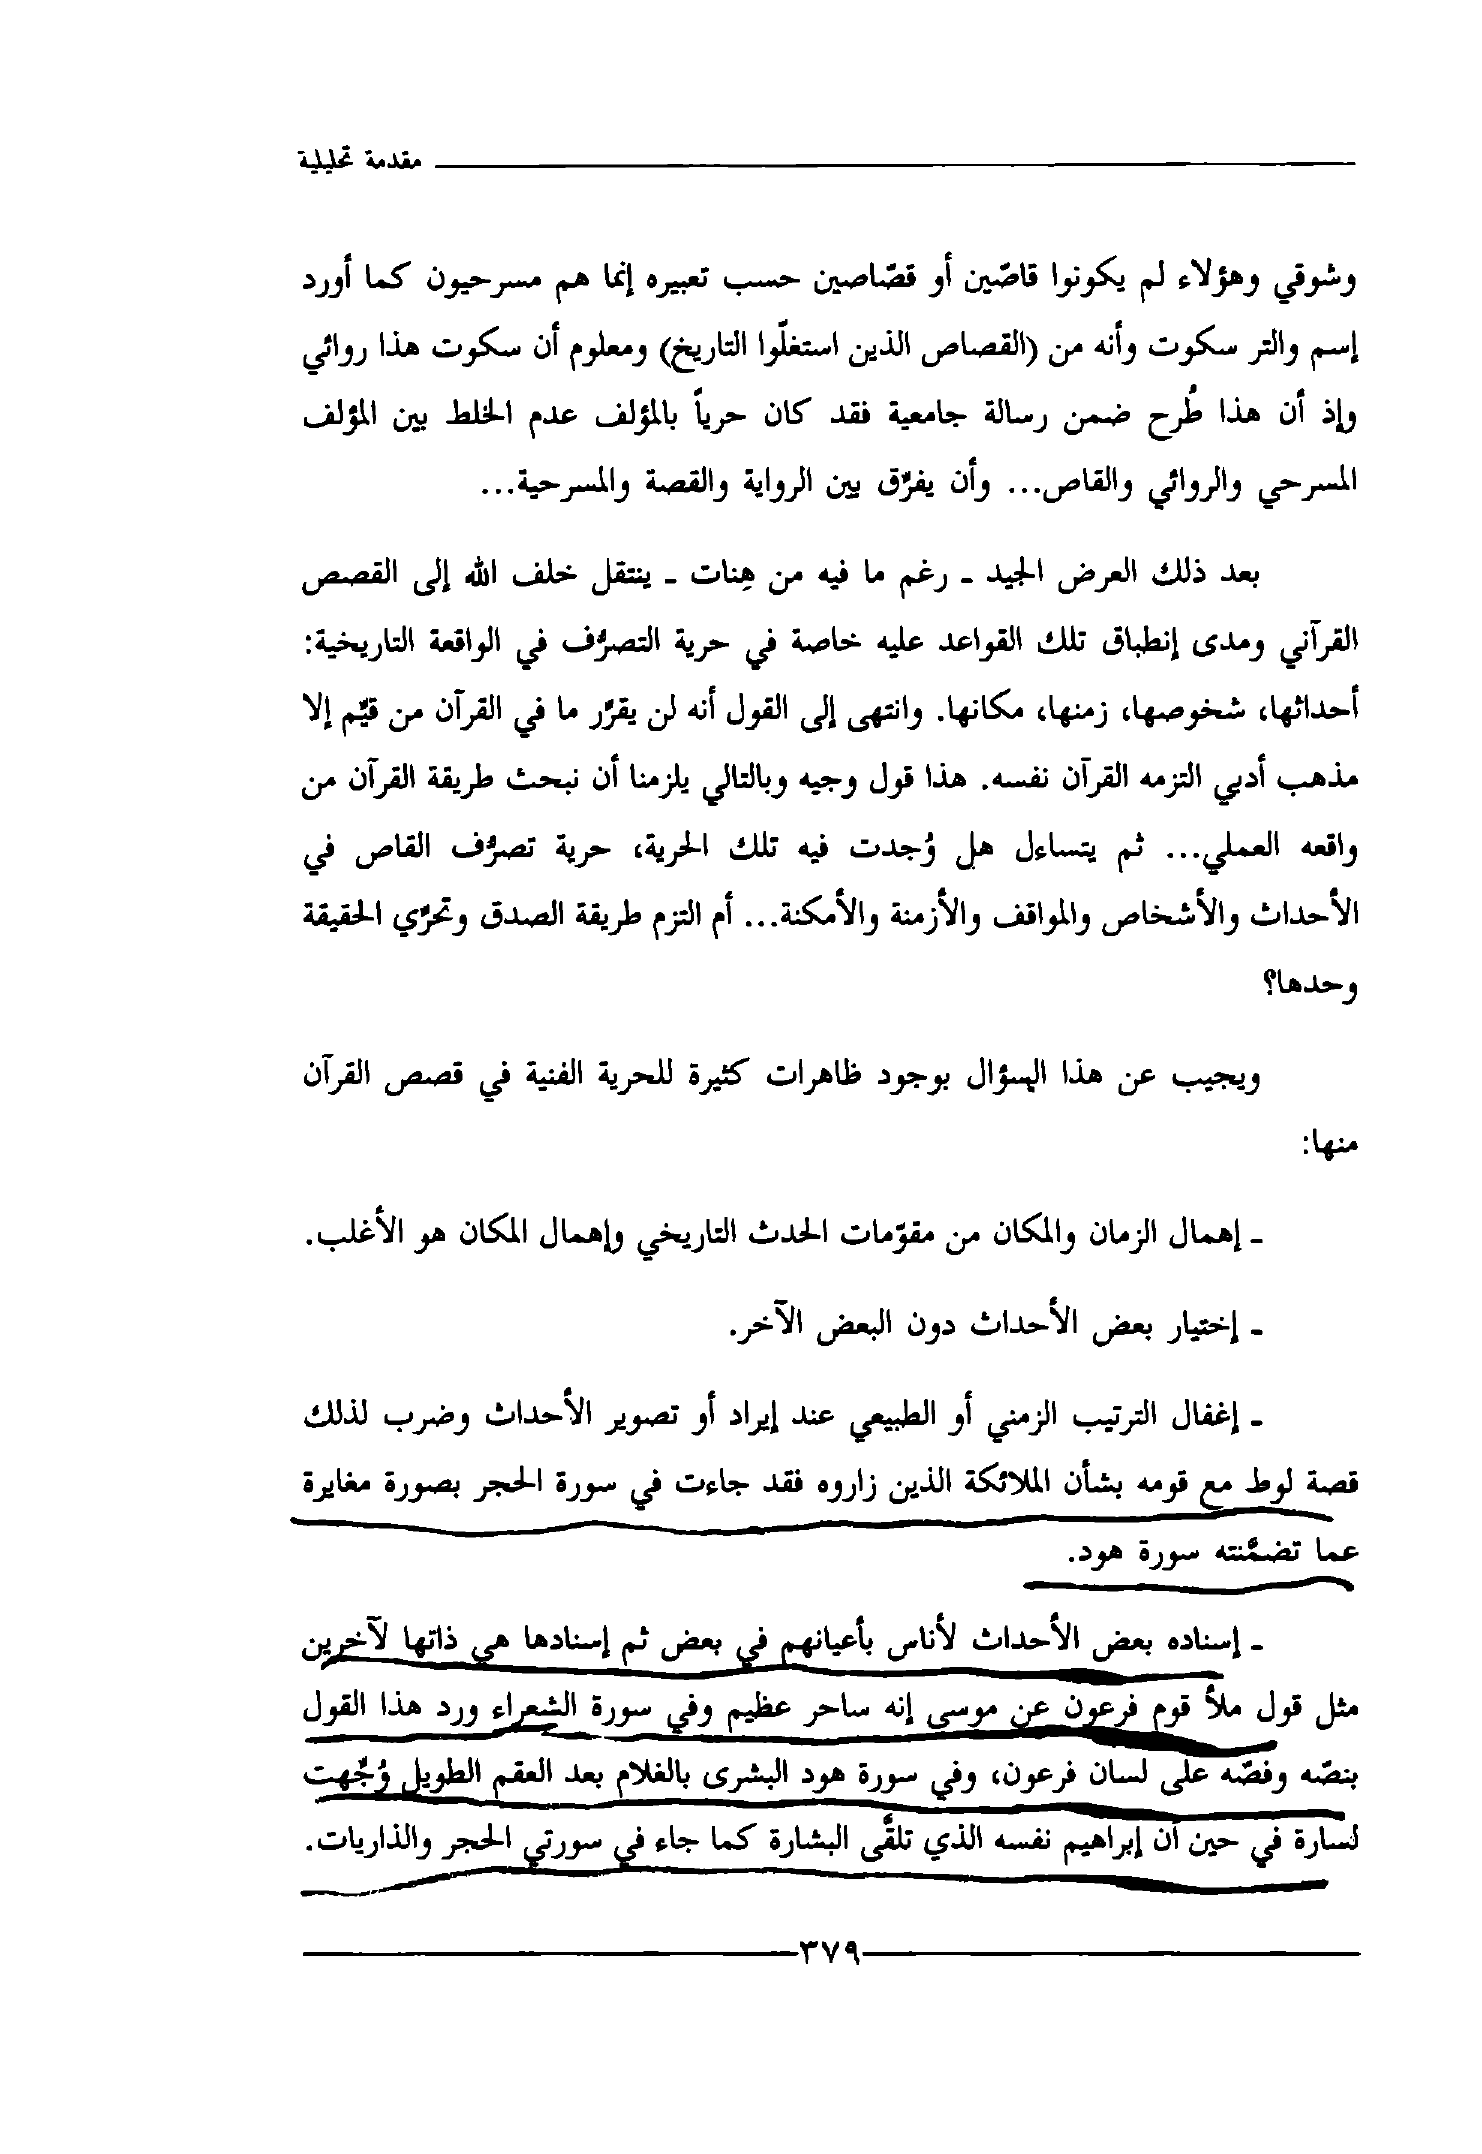 مقدمة تحليلية
وشوقي وهؤلاء لم يكونوا قاصّين أو قصّاصين حسب تعبيره إنما هم مسرحيون كما أورد
إسم والتر سكوت وأنه من (القصاص الذين استغلّوا التاريخ) ومعلوم أن سكوت هذا روائي
وإذ أن هذا طُرح ضمن رسالة جامعية فقد كان حرياً بالمؤلف عدم الخلط بين المؤلف
المسرحي والروائي والقاص... وأن يفرّق بين الرواية والقصة والمسرحية...
بعد ذلك العرض الجيد - رغم ما فيه من هِنات - ينتقل خلف الله إلى القصص
القرآني ومدى إنطباق تلك القواعد عليه خاصة في حرية التصرُّف في الواقعة التاريخية:
أحداثها، شخوصها، زمنها، مكانها. وانتهى إلى القول أنه لن يقرَّر ما في القرآن من قيَّم إلا
مذهب أدبي التزمه القرآن نفسه. هذا قول وجيه وبالتالي يلزمنا أن نبحث طريقة القرآن من
واقعه العملي... ثم يتساءل هل وُجدت فيه تلك الحرية، حرية تصرُّف القاص في
الأحداث والأشخاص والمواقف والأزمنة والأمكنة... أم التزم طريقة الصدق وتحرَّي الحقيقة
وحدها؟
ويجيب عن هذا السؤال بوجود ظاهرات كثيرة للحرية الفنية في قصص القرآن
منها:
- إهمال الزمان والمكان من مقوّمات الحدث التاريخي وإهمال المكان هو الأغلب.
- إختيار بعض الأحداث دون البعض الآخر.
- إغفال الترتيب الزمني أو الطبيعي عند إيراد أو تصوير الأحداث وضرب لذلك
قصة لوط مع قومه بشأن الملائكة الذين زاروه فقد جاءت في سورة الحجر بصورة مغايرة
عما تضمَّنته سورة هود.
- إسناده بعض الأحداث لأناس بأعيانهم في بعض ثم إسنادها هي ذاتها لآخرين
مثل قول ملأ قوم فرعون عن موسى إنه ساحر عظيم وفي سورة الشعراء ورد هذا القول
بنصّه وفصّه على لسان فرعون، وفي سورة هود البشرى بالغلام بعد العقم الطويل وُجَّهت
لسارة في حين أن إبراهيم نفسه الذي تلقَّى البشارة كما جاء في سورتي الحجر والذاريات.
٣٧٩